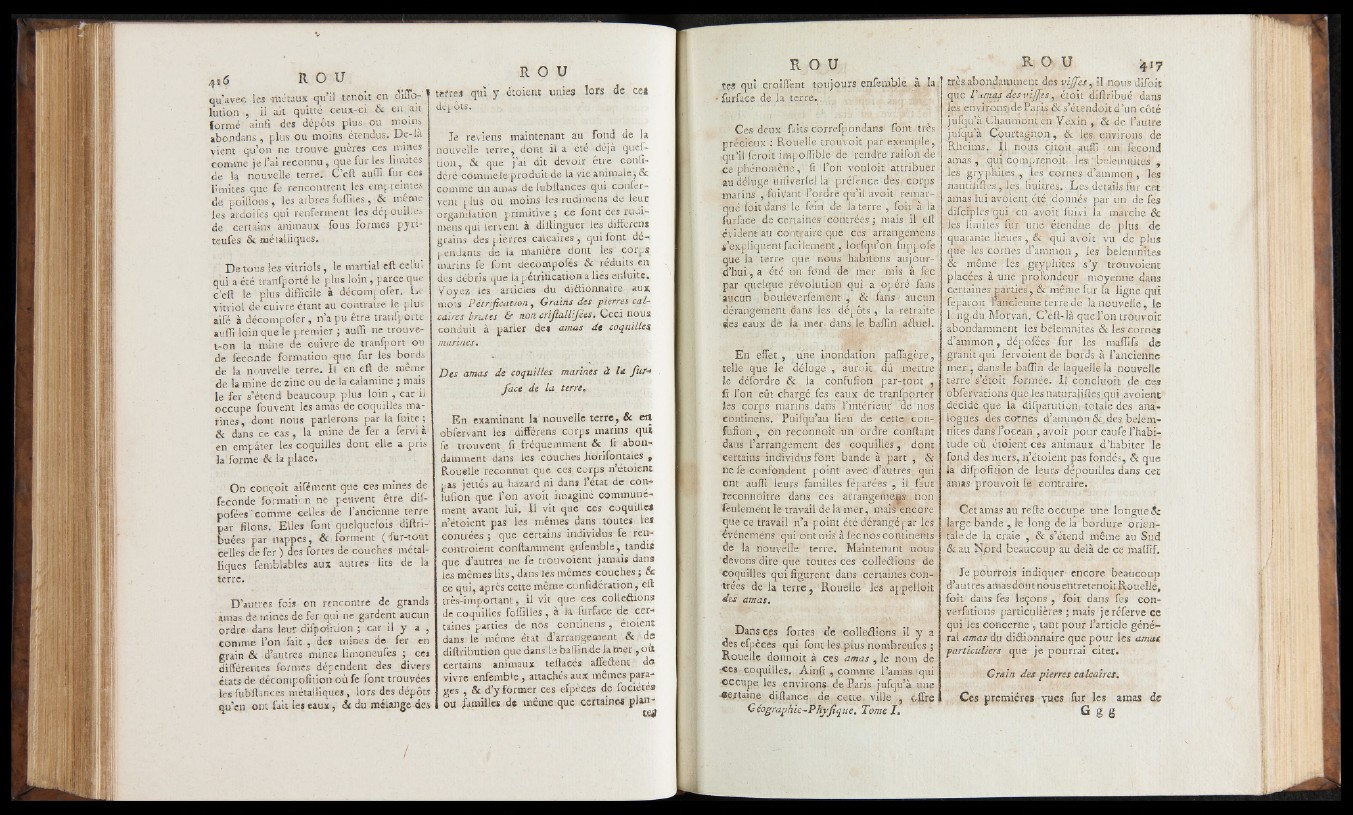 416
ROU
qu'avec les métaux qu'il tenoit en disso-
lution , il ait quitté ceux-ci & en ait
formé ainsi des dépôts plus ou moins
abondans , plus ou moins étendus. De-là
vient qu'on ne trouve guères ces mines
comme je l'ai reconnu , que sur les limites
de la nouvelle terre. C'est aussi sur ces
limites que se rencontrent les empreintes
de poissons , les arbres fossiles , & même
les ardoises qui renferment les dépouilles
de certains animaux sous formes pyri-
teuses & métalliques.
De tous les vitriols , le martial est celui
qui a été transporté le plus loin , parce que
c'est le plus difficile à décomposer. Le
vitriol de cuivre étant au contraire le plus
aisé à décomposer , n'a pu être transporté
aussi loin que le premier ; aussi ne trouve-
t-on la mine de cuivre de transport ou
de seconde formation que sur les bords
de la nouvelle terre. Il en est de même
de la mine de zinc ou de la calamine ; mais
le fer s'étend beaucoup plus loin , car il
occupe souvent les amas de coquilles ma-
rines, dont nous parlerons par la suite ;
& dans ce cas , la mine de fer a servi à
en empâter les coquilles dont elle a pris
la forme & la place.
On conçoit aisément que ces mines de
seconde formation ne peuvent être dis-
posées comme celles de l'ancienne terre
par filons. Elles sont quelquefois distri-
buées par nappes, & forment ( sur-tout
celles de fer ) des sortes de couches métal-
liques semblables aux autres lits de la
terre.
D'autres fois on rencontre de grands
amas de mines de fer qui ne gardent aucun
ordre dans leur disposition ; car il y a ,
comme l'on sait , des mines de fer en
grain & d'autres mines limoneuses ; ces
différentes formes dépendent des divers
états de décomposition où se sont trouvées
les substances métalliques , lors des dépôts
qu'en ont fait les eaux , & du mélange des
ROU
terres qui y étoient unies lors de ces
dépôts.
Je reviens maintenant au fond de la
nouvelle terre, dont il a été déjà ques-
tion, & que j'ai dit devoir être consi-
déré comme le produit de la vie animale, &
comme un amas de substances qui conser-
vent plus ou moins les rudimens de leur
organisation primitive ; ce sont ces rudi-
mens qui servent à distinguer les différens
grains des pierres calcaires , qui sont dé-
pendants de la manière dont les corps
marins se sont décomposés & réduits en
des débris que la pétrification a liés ensuite.
Voyez les articles du dictionnaire aux
mots Pétrification, Grains des pierres cal-
caires brutes & non cristallisées. Ceci nous
conduit à parler des amas de coquilles
marines.
Des amas de coquilles marines à la sur-
face de la terre.
En examinant la nouvelle terre, & en
observant les différens corps marins qui
se trouvent si fréquemment & si abon-
damment dans les couches horisontales ,
Rouelle reconnut que ces corps n'étoient
pas jettés au hazard ni dans l'état de con-
fusion que l'on avoit imaginé communé-
ment avant lui. Il vit que ces coquilles
n'étoient pas les mêmes dans toutes les
contrées ; que certains individus se ren-
controient constamment ensemble, tandis
que d'autres ne se trouvoient jamais dans
les mêmes lits, dans les mêmes couches ; &
ce qui, après cette même considération, est
très-important, il vit que ces collections
de coquilles fossilles, à la surface de cer-
taines parties de nos continens, étoient
dans le même état d'arrangement & de
distribution que dans le bassin de la mer , où
certains animaux testacés affectent de
vivre ensemble , attachés aux mêmes para-
ges , & d'y former ces espèces de sociétés
ou familles de même que certaines plan-
tes
ROU
tes qui croissent toujours ensemble à la
surface de la terre.
Ces deux faits correspondans sont très
précieux : Rouelle trouvoit par exemple,
qu'il seroit impossible de rendre raison de
ce phénomène, si l'on vouloit attribuer
au déluge universel la présence des corps
marins , suivant l'ordre qu'il avoit remar-
qué soit dans le sein de la terre , soit à la
surface de certaines contrées ; mais il est
évident au contraire que ces arrangemens
s'expliquent facilement , lorsqu'on suppose
que la terre que nous habitons aujour-
d'hui , a été un fond de mer mis à sec
par quelque révolution qui a opéré sans
aucun bouleversement , & sans aucun
dérangement dans les dépôts , la retraite
des eaux de la mer dans le bassin actuel.
En effet , une inondation passagère,
telle que le déluge , auroit dû mettre
le désordre & la confusion par-tout ,
si l'on eût chargé ses eaux de transporter
les corps marins dans l'intérieur de nos
continens. Puisqu'au lieu de cette con-
fusion , on reconnoît un ordre constant
dans l'arrangement des coquilles , dont
certains individus font bande à part , &
ne se confondent point avec d'autres qui
ont aussi leurs familles séparées , il faut
reconnoître dans ces arrangemens non
seulement le travail de la mer, mais encore
que ce travail n'a point été dérangé par les
événemens qui ont mis à sec nos continents
de la nouvelle terre. Maintenant nous
devons dire que toutes ces collections de
coquilles qui figurent dans certaines con-
trées de la terre, Rouelle les appelloit
des amas.
Dans ces sortes de collections il y a
des espèces qui sont les plus nombreuses ;
Rouelle donnoit à ces amas , le nom de
ces coquilles. Ainsi , comme l'amas qui
occupe les environs de Paris jusqu'à une
certaine distance de cette ville , offre
Géographie-Physique. Tome I.
ROU
417
très abondamment des visses, il nous disoit
que l'amas des visses, étoit distribué dans
les environs de Paris & s'étendoit d'un côté
jusqu'à Chaumont en Vexin , & de l'autre
jusqu'à Courtagnon, & les environs de
Rheims. Il nous citoit aussi un second
amas , qui comprenoit les belemnites ,
les gryphites , les cornes d'ammon , les
nautilites, les huîtres. Les détails sur cet
amas lui avoient été donnés par un de ses
disciples qui en avoit suivi la marche &
les limites sur une étendue de plus de
quarante lieues , & qui avoit vu de plus
que les cornes d'ammon , les belemnites
& même les gryphites s'y trouvoient
placées à une profondeur moyenne dans
certaines parties, & même sur la ligne qui
séparoit l'ancienne terre de la nouvelle, le
long du Morvan. C'est-là que l'on trouvoit
abondamment les belemnites & les cornes
d'ammon , déposées sur les massifs de
granit qui servoient de bords à l'ancienne
mer , dans le bassin de laquelle la nouvelle
terre s'étoit formée. Il concluoit de ces
observations que les naturalistes qui avoient
décidé que la disparution totale des ana-
logues des cornes d'ammon & des belem-
nites dans l'océan , avoit pour cause l'habi-
tude où étoient ces animaux d'habiter le
fond des mers, n'étoient pas fondés, & que
la disposition de leurs dépouilles dans cet
amas prouvoit le contraire.
Cet amas au reste occupe une longue &
large bande , le long de la bordure orien-
tale de la craie , & s'étend même au Sud
& au Nord beaucoup au delà de ce massif.
Je pourrois indiquer encore beaucoup
d'autres amas dont nous entretenoit Rouelle,
soit dans ses leçons , soit dans ses con-
versations particulières ; mais je réserve ce
qui les concerne , tant pour l'article géné-
ral amas du dictionnaire que pour les amas
particuliers que je pourrai citer.
Grain des pierres calcaires.
Ces premières vues sur les amas de
G g g